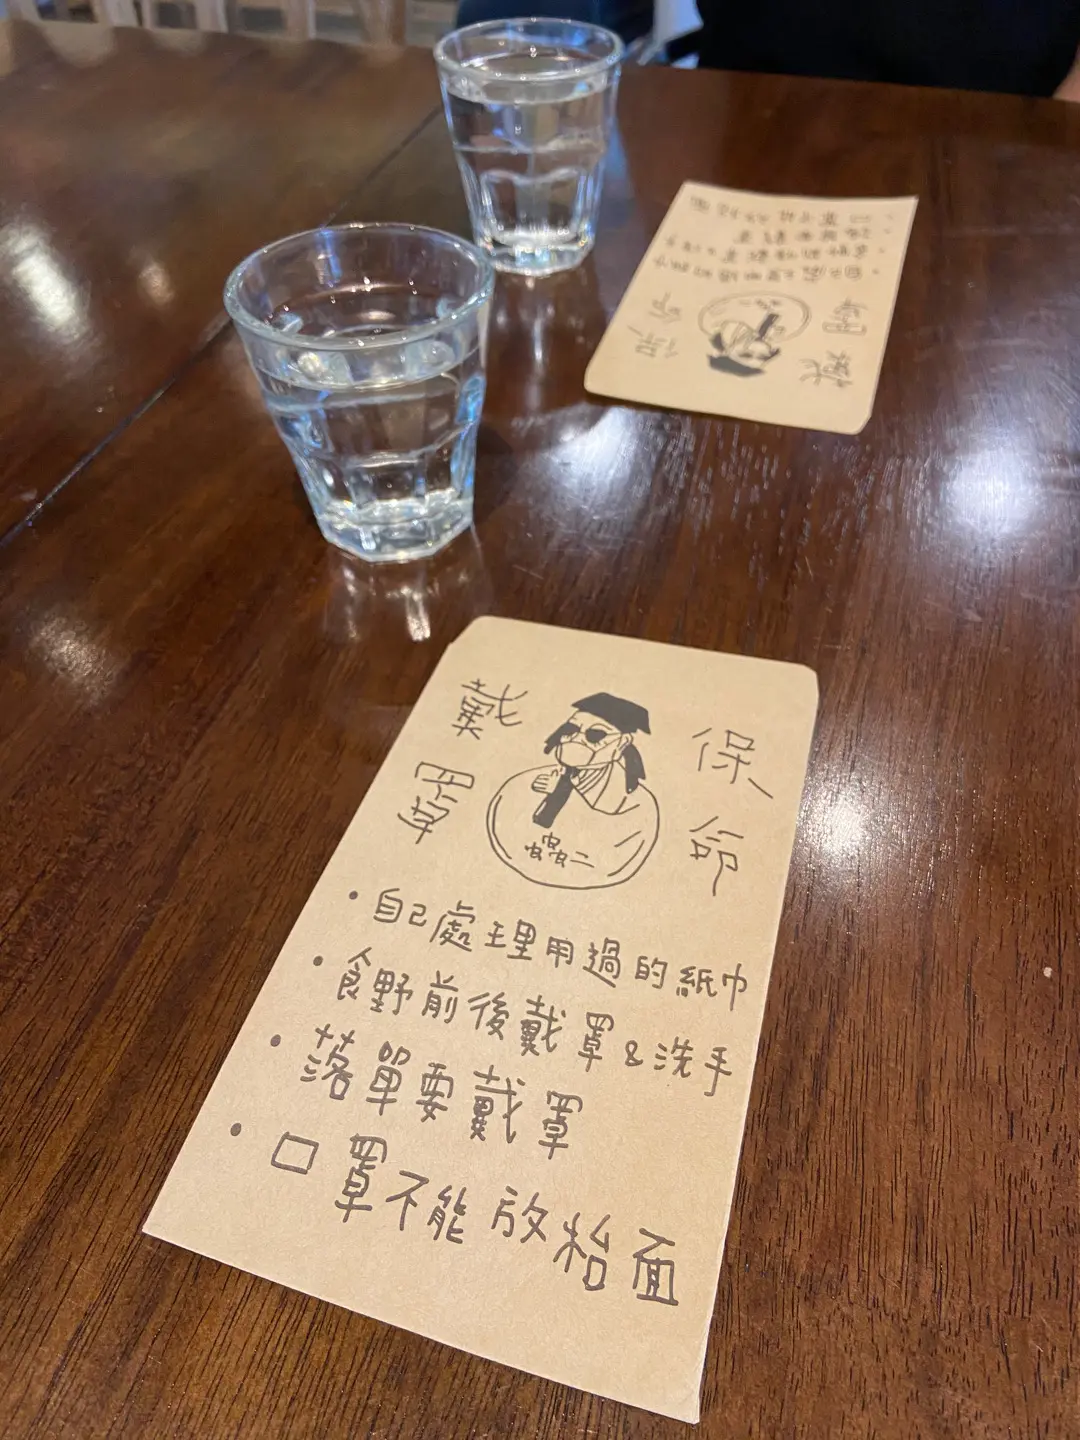 戴罩
保命
蟲二
• 自己處理用過的紙巾
• 食野前後戴罩&洗手
• 落單要戴罩
• 口罩不能放枱面